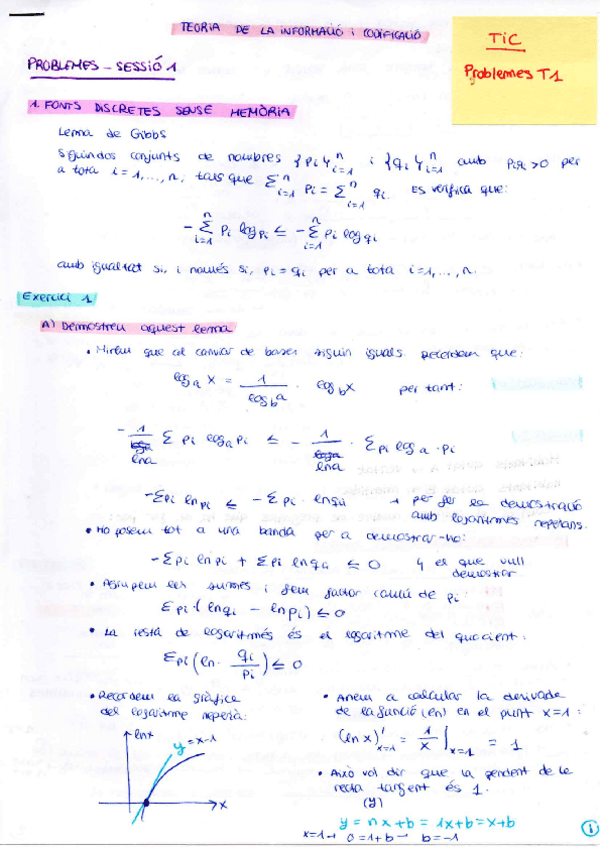 TEORIA DE LA INFORMACIÓ i CODIFICACIÓ
TIC
Problemes T1
PROBLEMES - SESSIÓ 1
1. FONTS DISCRETES SENSE MEMÒRIA
Lema de Gibbs
Siguin dos conjunts de nombres {pi}ⁿᵢ₌₁ i {qi}ⁿᵢ₌₁ amb pi,qi > 0 per
a tota i = 1,...,n, tals que Σⁿᵢ₌₁ pi = Σⁿᵢ₌₁ qi. Es verifica que:
- Σⁿᵢ₌₁ pi log pi ≤ - Σⁿᵢ₌₁ pi log qi
amb igualtat si, i només si, pi = qi per a tota i=1,...,n.
Exercici 1
A) Demostreu aquest lema
• Mirem que al canviar de bases siguin iguals. Recordem que:
logₐ x = 1/log_b a · log_b x per tant:
- 1/ln a Σ pi logₐ pi ≤ - 1/ln a · Σ pi logₐ · pi
-Σpi ln pi ≤ - Σpi · ln qi → per fer la demostració
amb logaritmes neperians.
• Ho posem tot a una banda per a demostrar-ho:
-Σpi ln pi + Σpi ln qi ≤ 0 el que vull
demostrar
• Agrupem les sumes i fem factor comú de pi:
Σpi · (ln qi - ln pi) ≤ 0
• La resta de logaritmes és el logaritme del quocient:
Σpi (ln · qi/pi) ≤ 0
• Recordem la gràfica
del logaritme neperià:
ln x
y = x-1
x
• Anem a calcular la derivada
de la funció (ln) en el punt x=1:
(ln x)'ₓ₌₁ = 1/x |ₓ₌₁ = 1
• Això vol dir que la pendent de la
recta targent és 1.
(y)
y = nx+b = 1x+b = x+b
x=1 → 0=1+b → b=-1
1